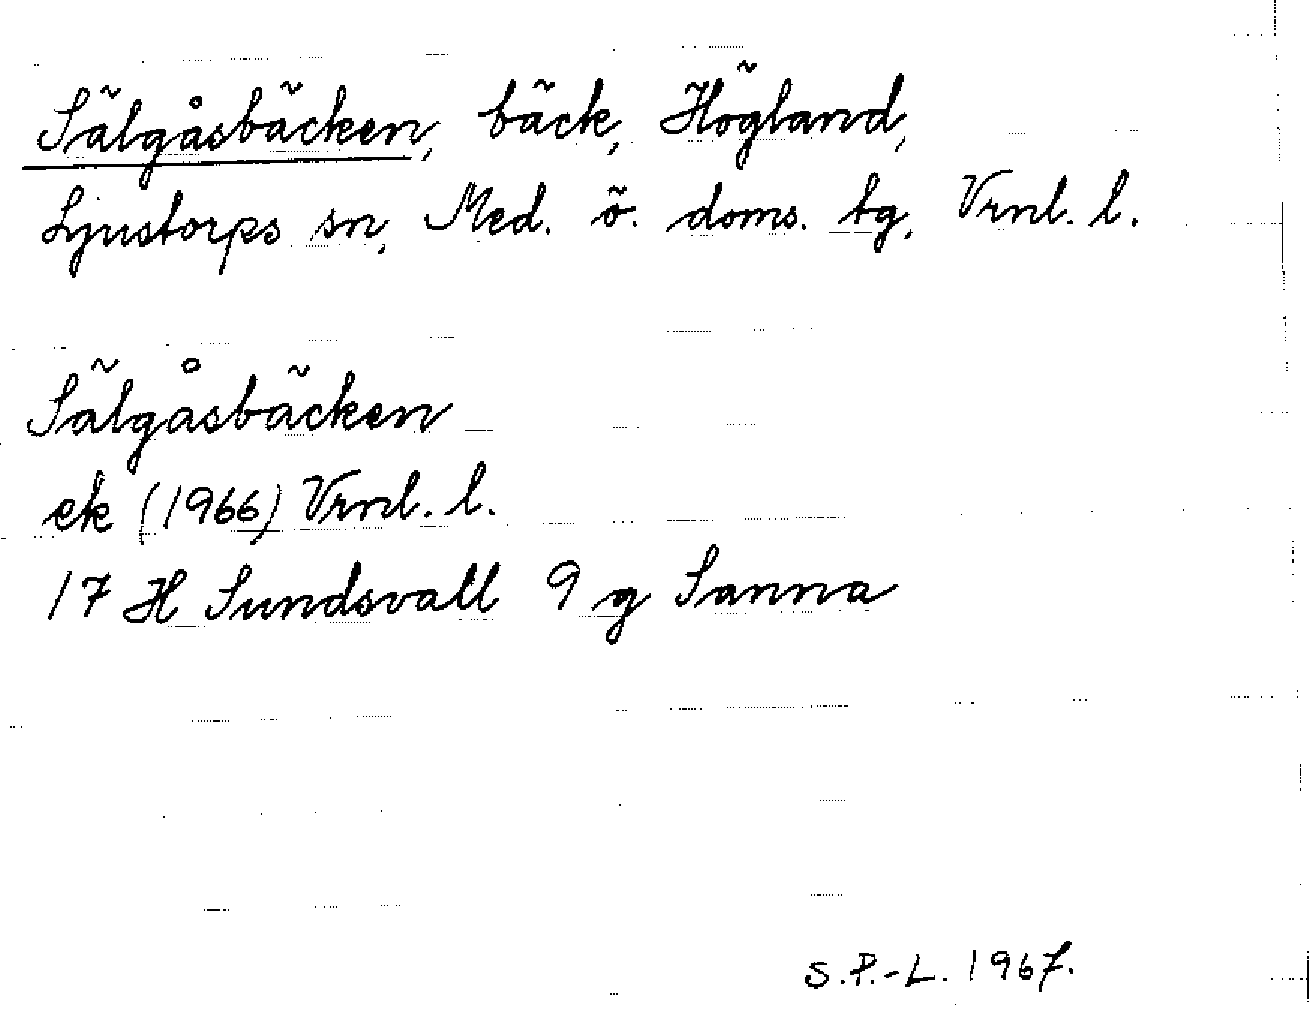 Sälgåsbäcken, bäck, Högland,
Ljustorps sn, Med. ö. doms. tg, Vrnl. l.
Sälgåsbäcken
ek (1966) Vrnl. l.
17 H Sundsvall 9 g Sanna
S.P.-L. 1967.